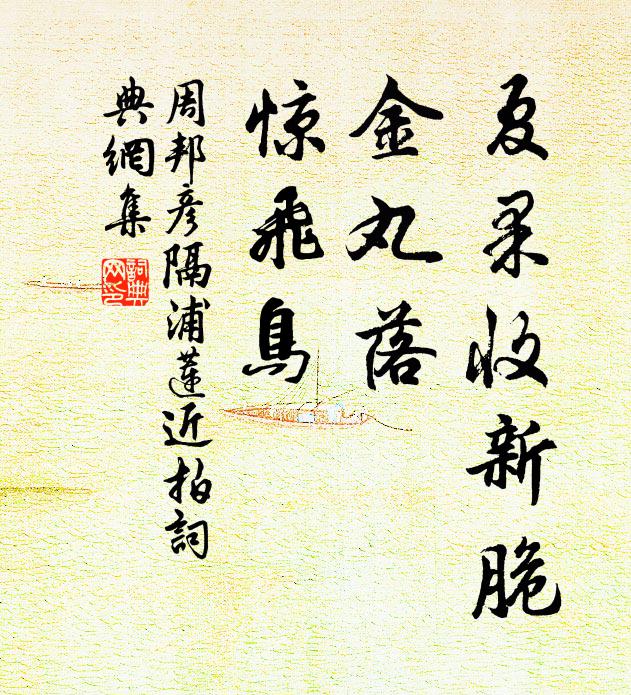 夏果收新脆
金丸落
惊飛鳥
周邦彦隔浦蓮近拍詞
典網集
詞典网印